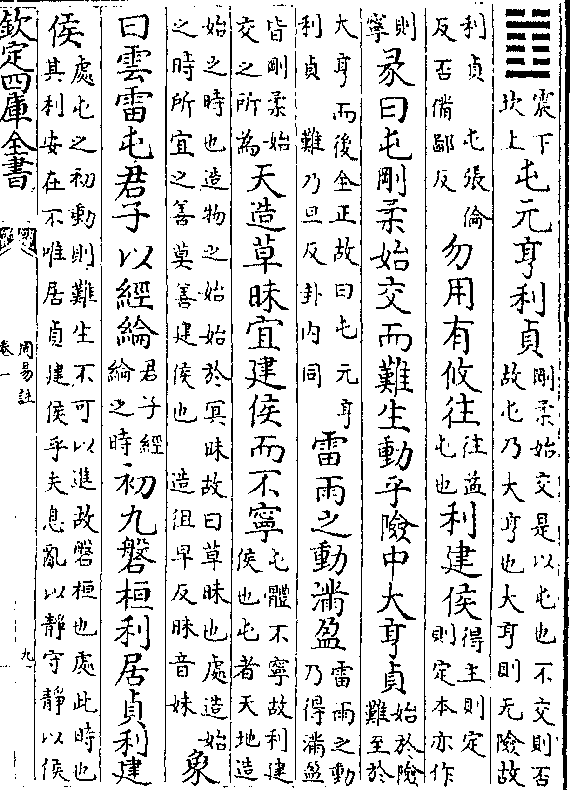 震下坎上屯元亨利貞剛柔始交是以屯也不交則否故屯乃大亨也大亨則无險故
利貞屯張倫反否備鄙反勿用有攸往往益屯也利建侯得主則定則定本亦作
則寧彖曰屯剛柔始交而難生動乎險中大亨貞始於險難至於
大亨而後全正故曰屯元亨利貞難乃旦反卦内同雷雨之動滿盈雷雨之動乃得滿盈
皆剛柔始交之所為天造草昧宜建侯而不寧屯體不寧故利建侯也屯者天地造
始之時也造物之始始於冥昧故曰草昧也處造始之時所宜之善莫善建侯也造徂早反昧音妹象
曰雲雷屯君子以經綸君子經綸之時初九磐桓利居貞利建
侯處屯之初動則難生不可以進故磐桓也處此時也其利安在不唯居貞建侯乎夫息亂以靜守靜以侯
欽定四庫全書
周易註
卷一
九